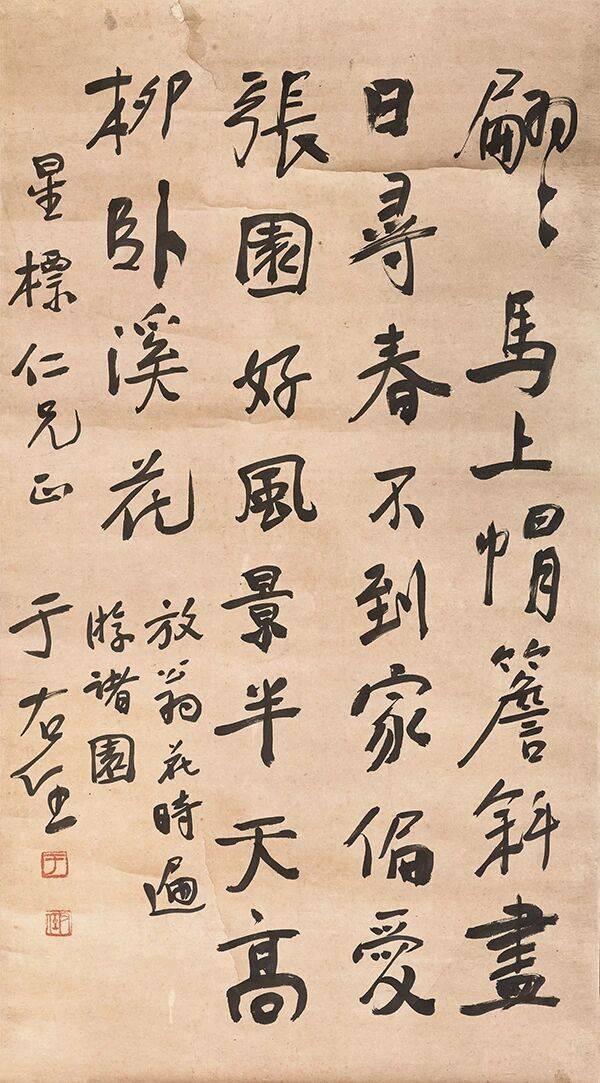 翩〻馬上帽簷斜盡
日尋春不到家偏愛
張園好風景半天高
柳卧溪花
放翁花時遍
游諸園
星標仁兄正
于右任
于